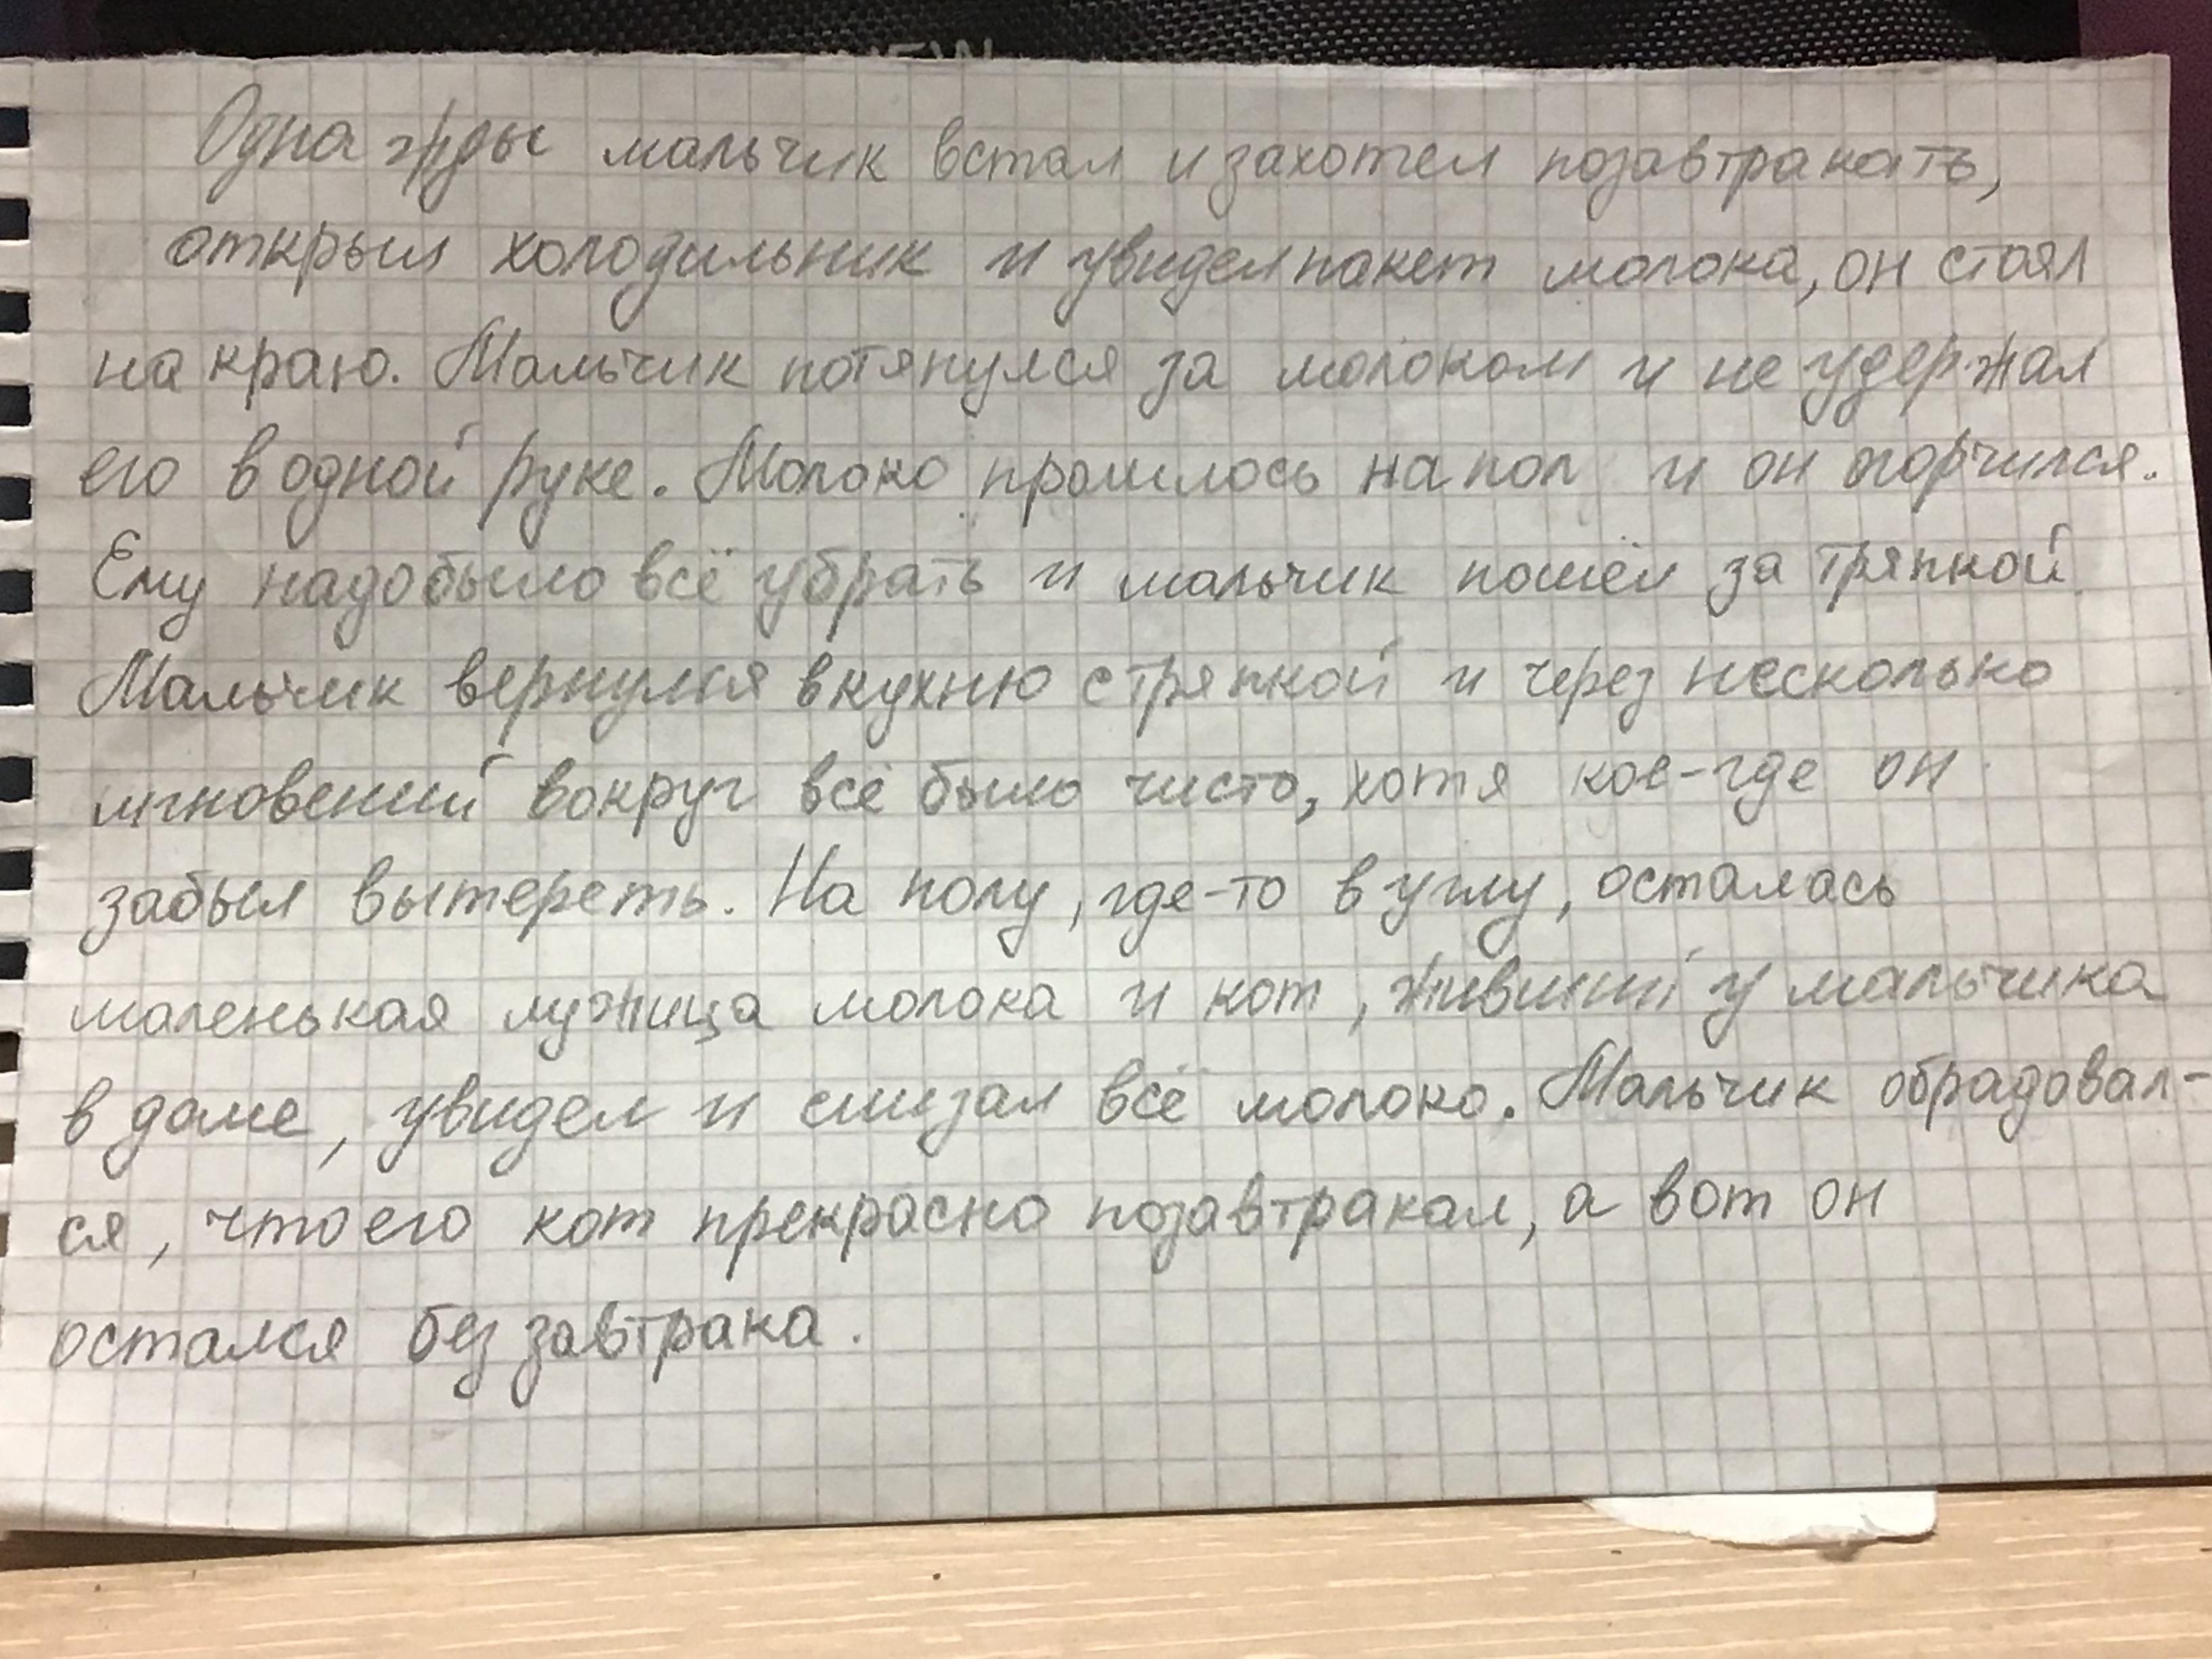 NEW
Однажды мальчик встал и захотел позавтракать,
открыл холодильник и увидел пакет молока, он стоял
на краю. Мальчик потянулся за молоком и не удержал
его в одной руке. Молоко пролилось на пол и он огорчился.
Ему надо было всё убрать и мальчик пошёл за тряпкой
Мальчик вернулся в кухню с тряпкой и через несколько
мгновений вокруг всё было чисто, хотя кое-где он
забыл вытереть. На полу, где-то в углу, осталась
маленькая лужица молока и кот, живший у мальчика
в доме, увидел и слизал всё молоко. Мальчик обрадовал-
ся, что его кот прекрасно позавтракал, а вот он
остался без завтрака.